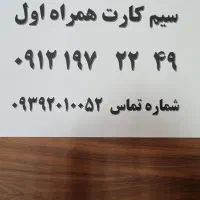 سیم کارت همراه اول
۰۹۱۲ ۱۹۷ ۲۲ ۴۹
شماره تماس ۰۹۳۹۲۰۱۰۰۵۲